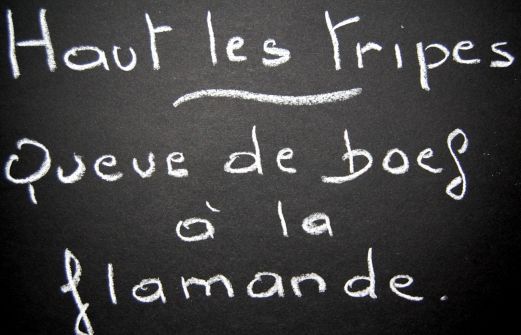 Haut les tripes
Queue de boef
à la
flamande.